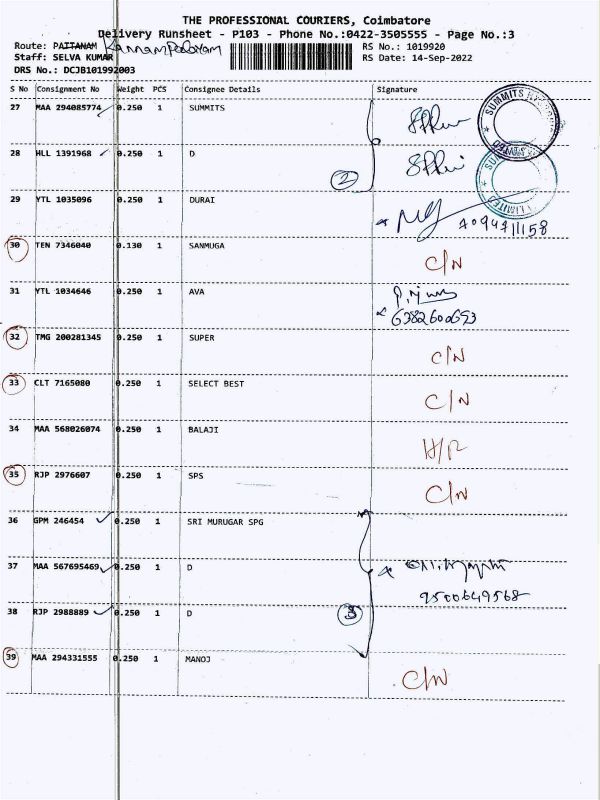 THE PROFESSIONAL COURIERS, Coimbatore
Delivery Runsheet - P103 - Phone No.:0422-3505555 - Page No.:3
Route: PATTANAM Kannampalayam
RS No.: 1019920
Staff: SELVA KUMAR
RS Date: 14-Sep-2022
DRS No.: DCJB101992003
S No Consignment No Weight PCS Consignee Details Signature
27 MAA 294085774 0.250 1 SUMMITS
28 HLL 1391968 0.250 1 D
2
29 YTL 1035096 0.250 1 DURAI
7094711158
30 TEN 7346040 0.130 1 SANMUGA C/N
31 YTL 1034646 0.250 1 AVA
6382600653
32 TMG 200281345 0.250 1 SUPER C/N
33 CLT 7165080 0.250 1 SELECT BEST C/N
34 MAA 568026074 0.250 1 BALAJI H/R
35 RJP 2976607 0.250 1 SPS C/N
36 GPM 246454 0.250 1 SRI MURUGAR SPG
37 MAA 567695469 0.250 1 D
9500649568
38 RJP 2988889 0.250 1 D 3
39 MAA 294331555 0.250 1 MANOJ C/N